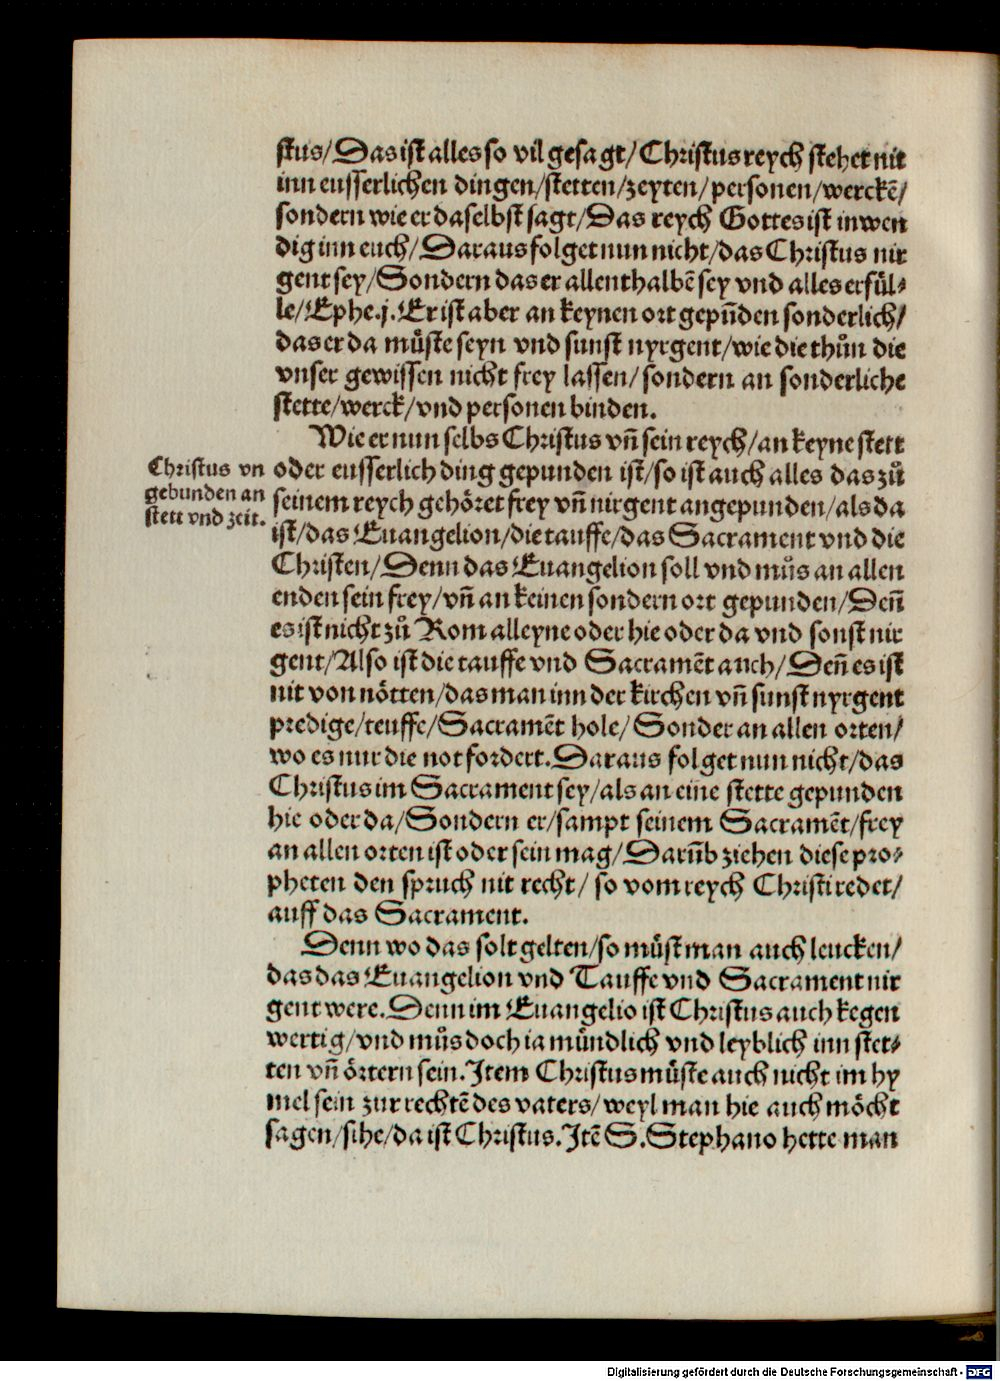 stus/Das ist alles so vil gesagt/Christus reych stehet nit
inn eusserlichen dingen/stetten/zeyten/personen/werckē/
sondern wie er daselbst sagt/Das reych Gottes ist inwen
dig inn euch/Daraus folget nun nicht/das Christus nir
gent sey/Sondern das er allenthalbē sey vnd alles erfül⸗
le/Ephe.j. Er ist aber an keynen ort gepūden sonderlich/
das er da müste seyn vnd sunst nyrgent/wie die thůn die
vnser gewissen nicht frey lassen/sondern an sonderliche
stette/werck/vnd personen binden.
Wie er nun selbs Christus vñ sein reych/an keyne stett
Christus vn
gebunden an
stett vnd zeit.
oder eusserlich ding gepunden ist/so ist auch alles das zů
seinem reych gehöret frey vñ nirgent angepunden/als da
ist/das Euangelion/die tauffe/das Sacrament vnd die
Christen/Denn das Euangelion soll vnd můs an allen
enden sein frey/vñ an keinen sondern ort gepunden/Deñ
es ist nicht zů Rom alleyne oder hie oder da vnd sonst nir
gent/Also ist die tauffe vnd Sacramēt auch/Deñ es ist
nit von nötten/das man inn der kirchen vñ sunst nyrgent
predige/teuffe/Sacramēt hole/Sonder an allen orten/
wo es nur die not fordert. Daraus folget nun nicht/das
Christus im Sacrament sey/als an eine stette gepunden
hie oder da/Sondern er/sampt seinem Sacramēt/frey
an allen orten ist oder sein mag/Darūb ziehen diese pro⸗
pheten den spruch nit recht/so vom reych Christi redet/
auff das Sacrament.
Denn wo das solt gelten/so müst man auch leucken/
das das Euangelion vnd Tauffe vnd Sacrament nir
gent were. Denn im Euangelio ist Christus auch kegen
wertig/vnd můs doch ia mündlich vnd leyblich inn stet⸗
ten vñ örtern sein. Item Christus müste auch nicht im hy
mel sein zur rechtē des vaters/weyl man hie auch möcht
sagen/sihe/da ist Christus. Itē S. Stephano hette man
Digitalisierung gefördert durch die Deutsche Forschungsgemeinschaft - DFG